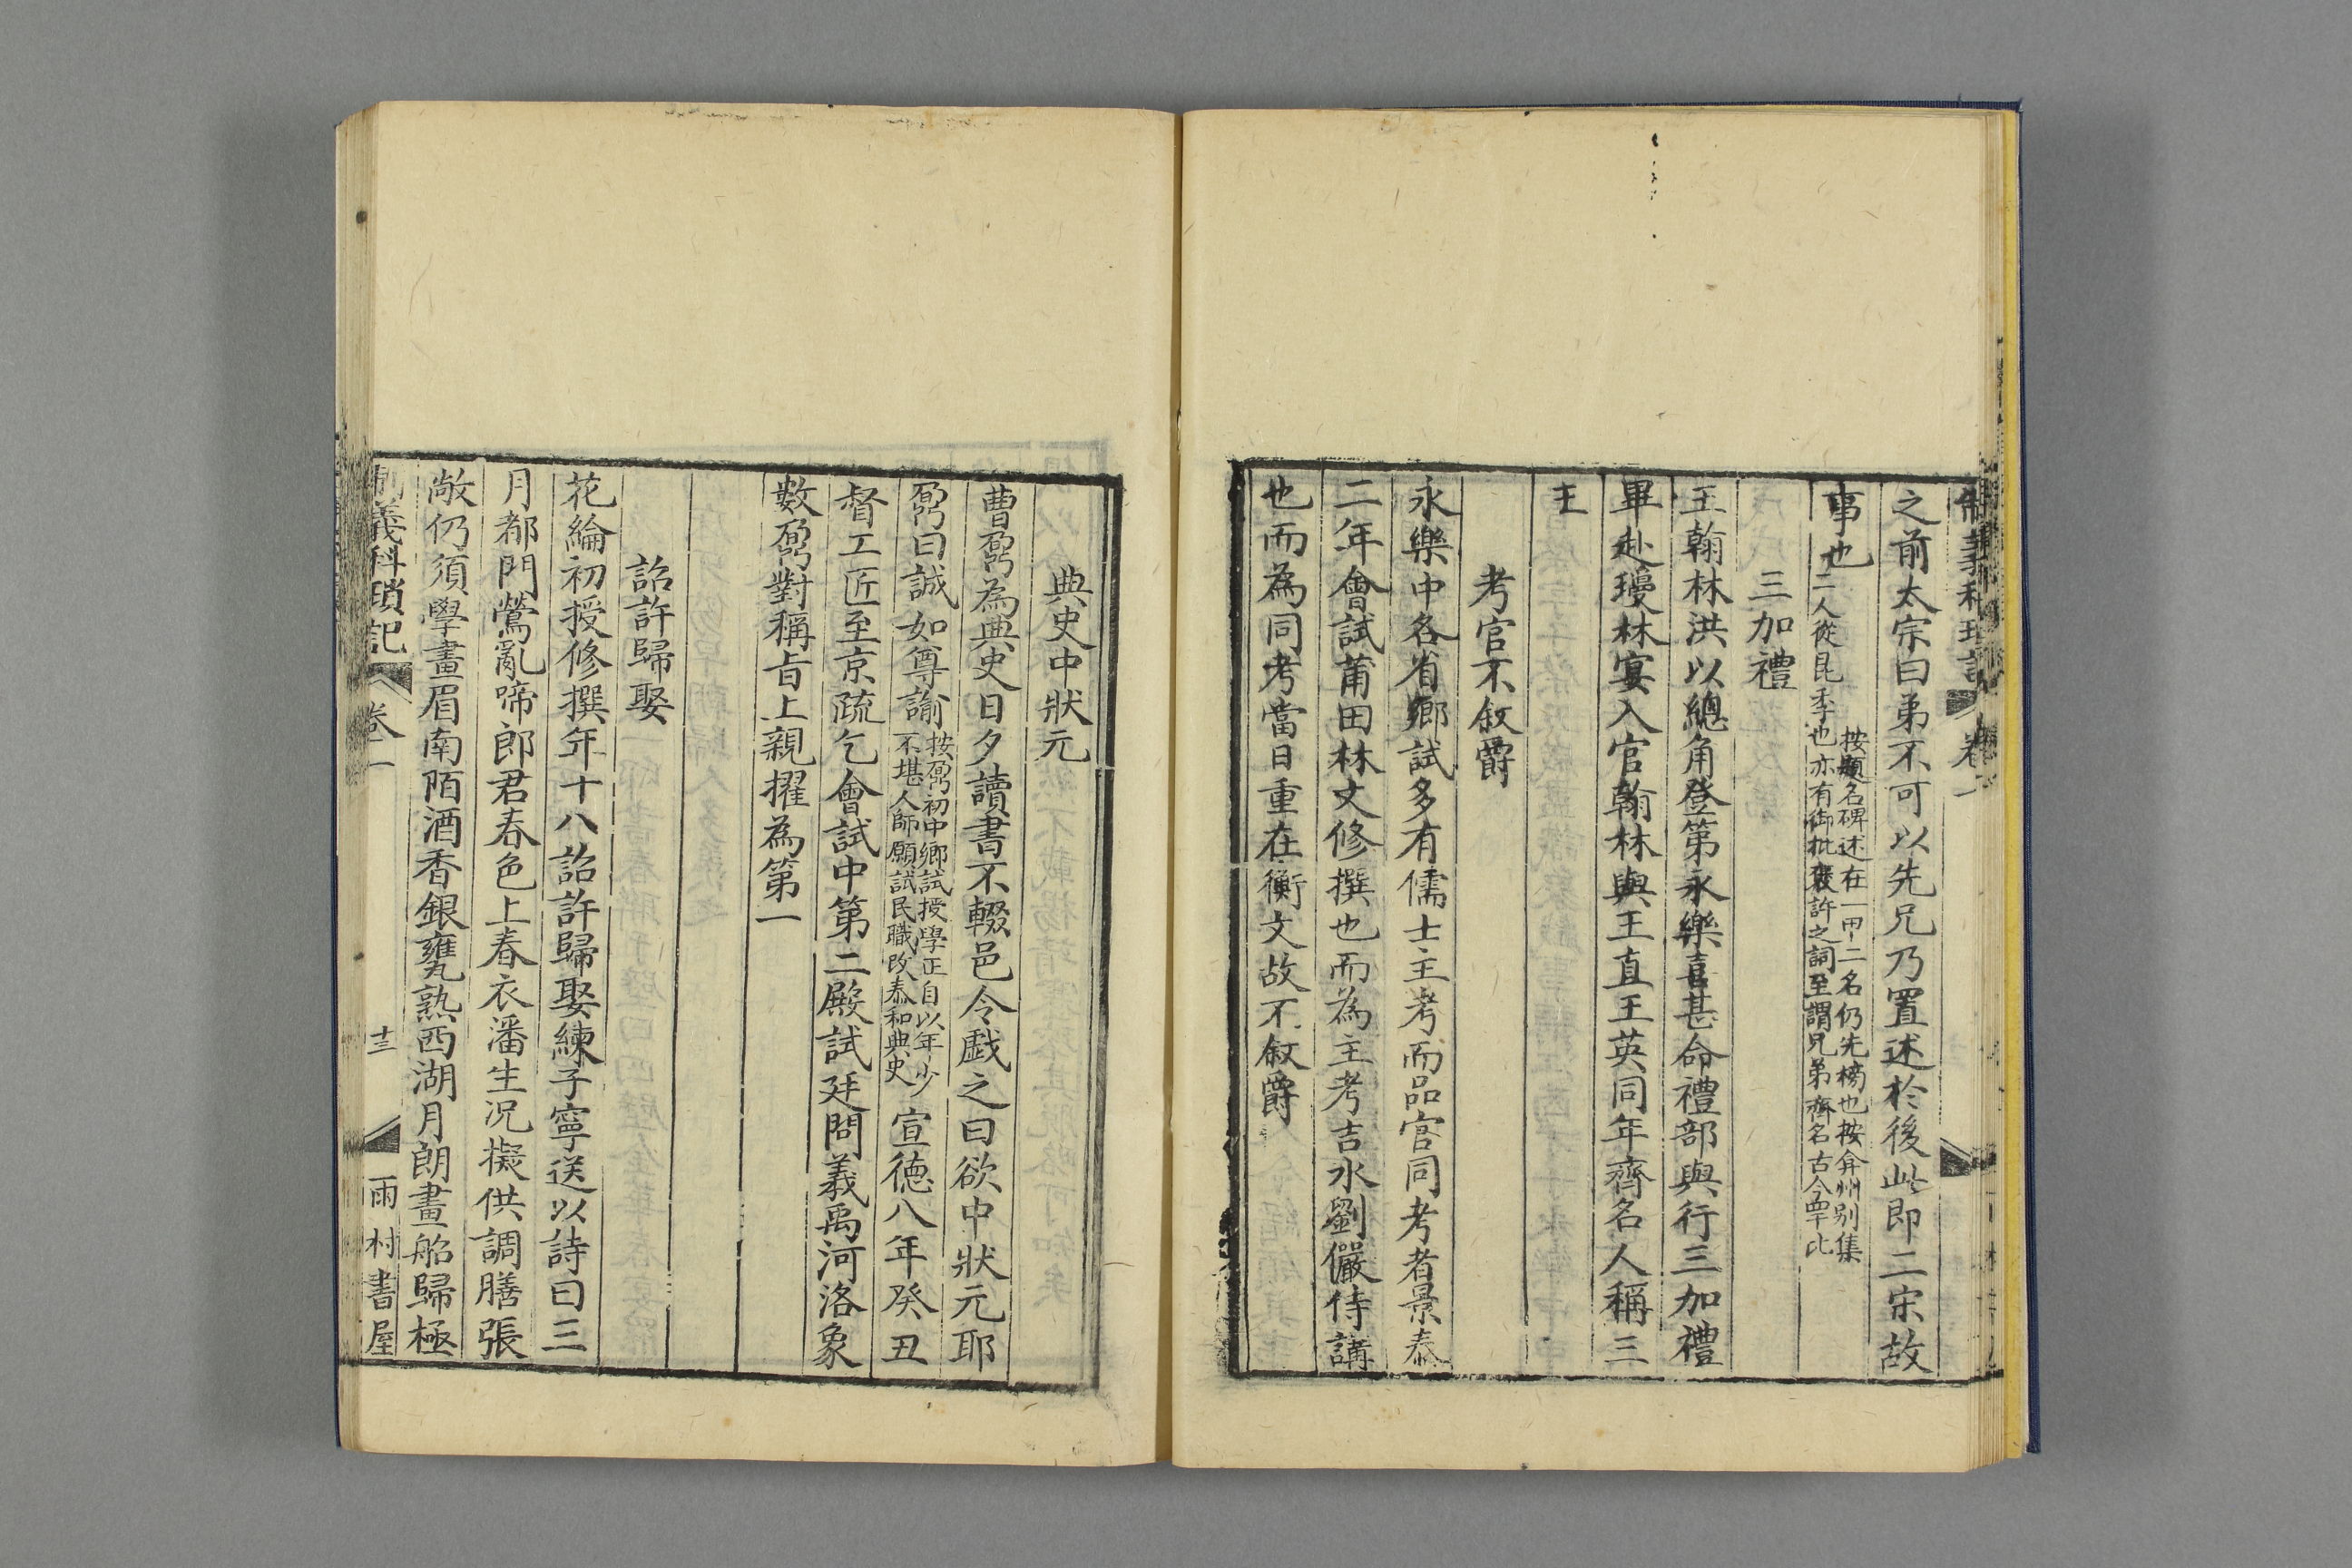 之前太宗曰弟不可以先兄乃置述於後此即二宋故
事也
按題名碑述在一甲二名仍先榜也按弇州别集
二人從昆季也亦有御批襃許之詞至謂兄弟齊名古今罕比
三加禮
王翰林洪以總角登第永樂喜甚命禮部與行三加禮
畢赴瓊林宴入官翰林與王直王英同年齊名人稱三
王
考官不敘爵
永樂中各省鄉試多有儒士主考而品官同考者景泰
二年會試莆田林文修撰也而為主考吉水劉儼侍講
也而為同考當日重在衡文故不敘爵
典史中狀元
曹鼐為典史日夕讀書不輟邑令戲之曰欲中狀元耶
鼐曰誠如尊諭
按鼐初中鄉試授學正自以年少
不堪人師願試民職改泰和典史
宣德八年癸丑
督工匠至京疏乞會試中第二殿試廷問義禹河洛象
數鼐對稱旨上親擢為第一
詔許歸娶
花綸初授修撰年十八詔許歸娶練子寧送以詩曰三
月都門鶯亂啼郎君春色上春衣潘生况擬供調膳張
敞仍須學畫眉南陌酒香銀甕熟西湖月朗畫船歸極
制義科瑣記 卷一 十三 雨村書屋